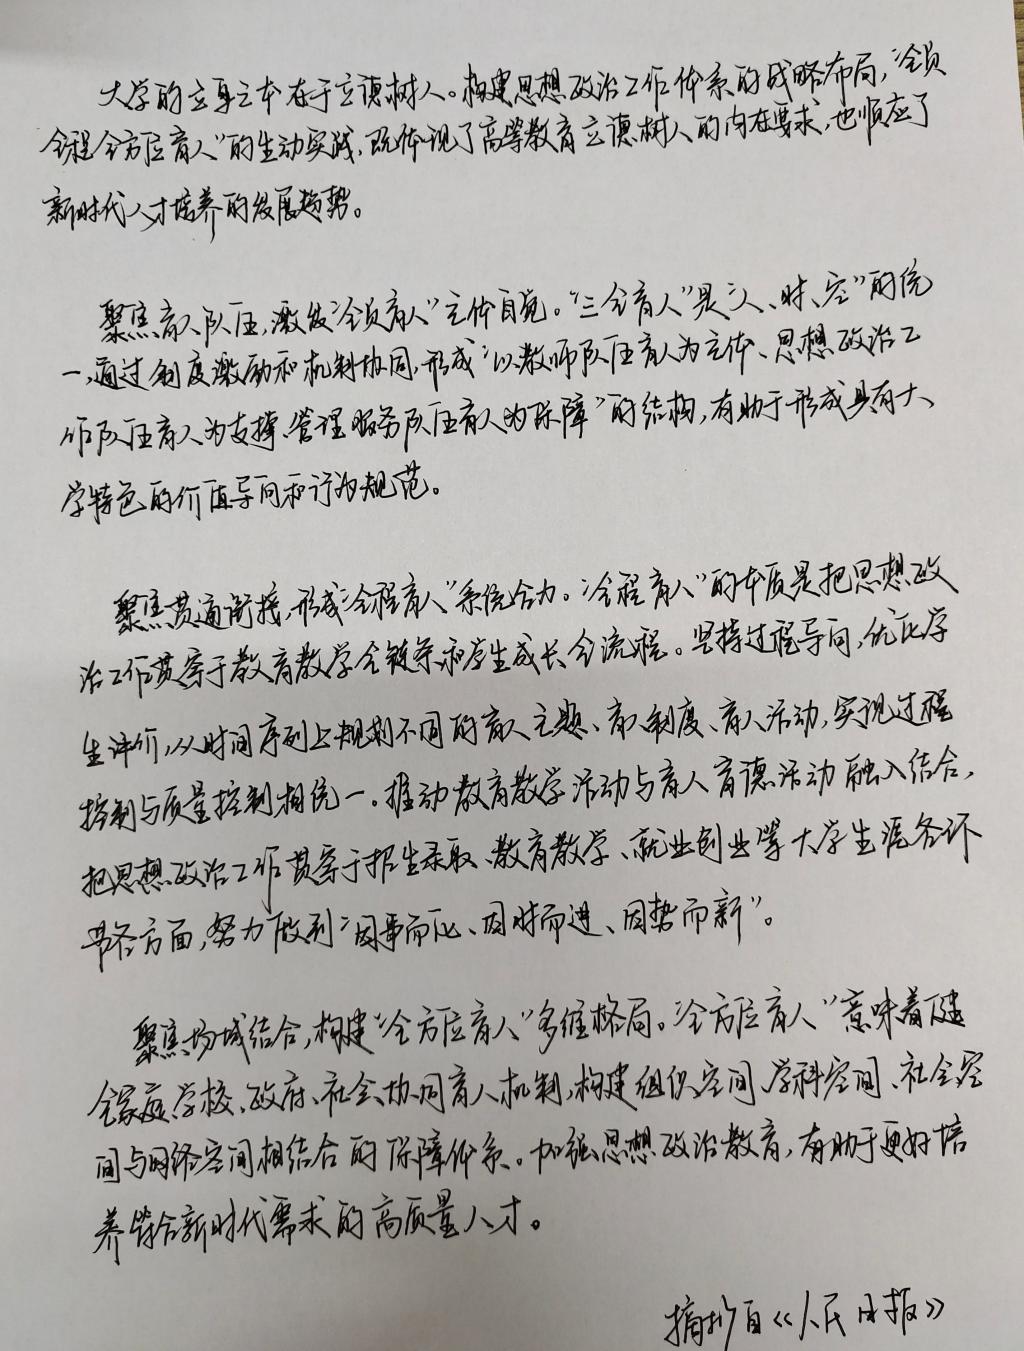 大学的立身之本在于立德树人。构建思想政治工作体系的战略布局，“全员
全程全方位育人”的生动实践，既体现了高等教育立德树人的内在要求，也顺应了
新时代人才培养的发展趋势。
聚焦育人队伍，激发“全员育人”主体自觉。“三全育人”是“人、时、空”的统
一，通过制度激励和机制协同，形成“以教师队伍育人为主体、思想政治工
作队伍育人为支撑、管理服务队伍育人为保障”的结构，有助于形成具有大
学特色的价值导向和行为规范。
聚焦贯通衔接，形成“全程育人”系统合力。“全程育人”的本质是把思想政
治工作贯穿于教育教学全链条和学生成长全流程。坚持过程导向，优化学
生评价，从时间序列上规划不同的育人主题、育人制度、育人活动，实现过程
控制与质量控制相统一。推动教育教学活动与育人育德活动融入结合，
把思想政治工作贯穿于招生录取、教育教学、就业创业等大学生涯各环
节各方面，努力做到“因事而化、因时而进、因势而新”。
聚焦场域结合，构建“全方位育人”多维格局。“全方位育人”意味着健
全家庭、学校、政府、社会协同育人机制，构建组织空间、学科空间、社会空
间与网络空间相结合的保障体系。加强思想政治教育，有助于更好培
养符合新时代需求的高质量人才。
摘抄自《人民日报》